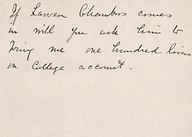 If Lawson Chambers comes
in will you ask him to
bring me one hundred lines
on College account.